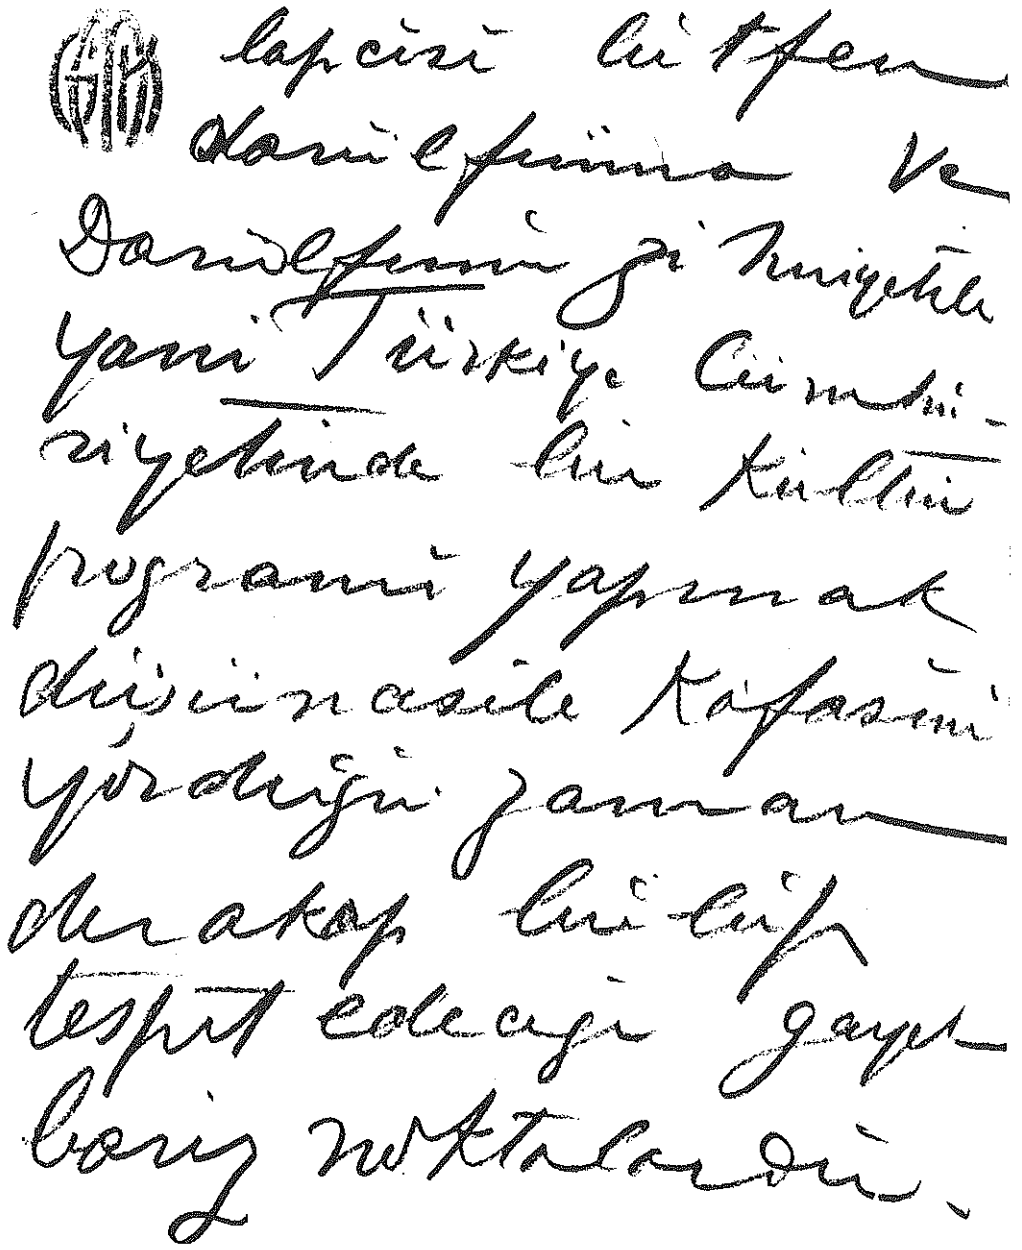 lapcisi lütfen
darülfünuna ve
Darülfünun zihniyetile
yani Türkiye Cümhu-
riyetinde bir Kültür
programı yapmak
düşüncesile Kafasını
yorduğu zaman
derakap bulup
tespit edeceği gayet
bariz noktalardır.